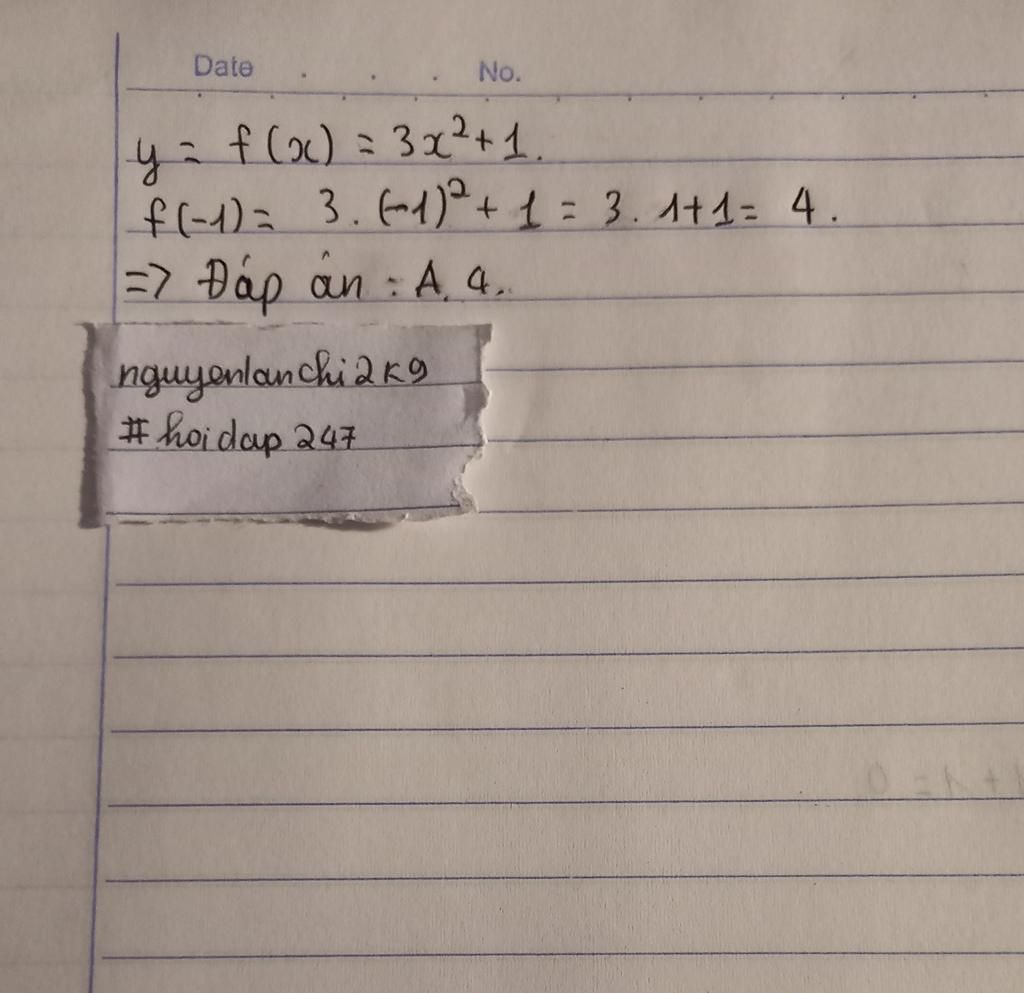 Date . . . No.
y = f(x) = 3x² + 1.
f(-1) = 3. (-1)² + 1 = 3. 1+1 = 4.
=> Đáp án : A. 4.
nguyenlanchi2k9
# hoidap 247
1 + 1 = 0